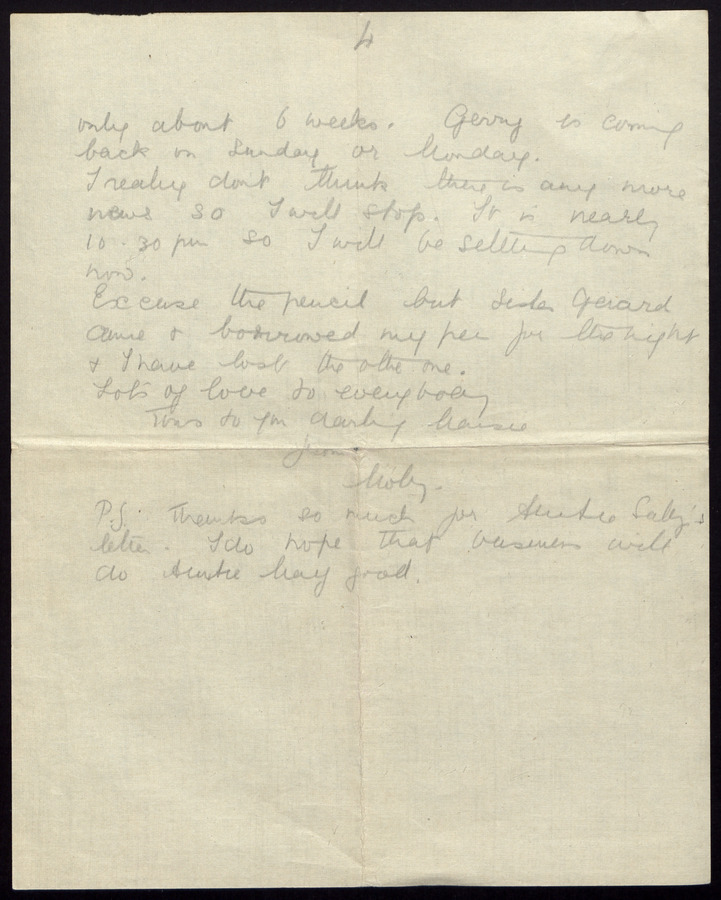 4
only about 6 weeks. Gerry is coming
back on Sunday or Monday.
I really dont think there is any more
news so I will stop. It is nearly
10.30 pm so I will be settling down
now.
Excuse the pencil but Sister Gerard
came & borrowed my pen for the night
& I have lost the other one.
Lots of love to everybody
& to you darling
from
Moby.
P.S. Thanks so much for Auntie Sally's
letter. I do hope that business will
do Auntie May good.